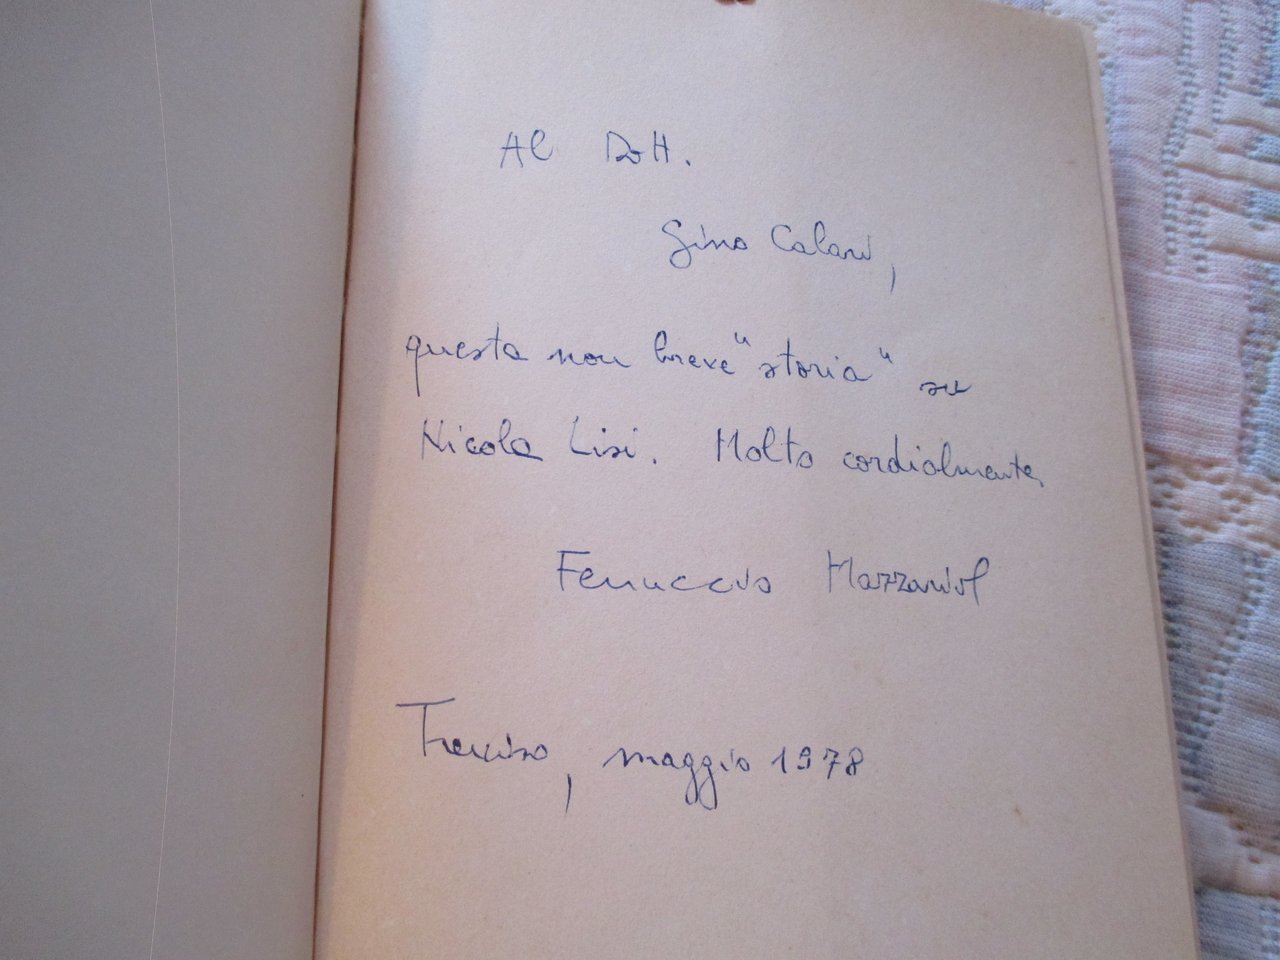 Al Dott.
Gino Calani,
questa non breve "storia" su
Nicola Lisi. Molto cordialmente,
Ferruccio Mazzariol
Treviso, maggio 1978